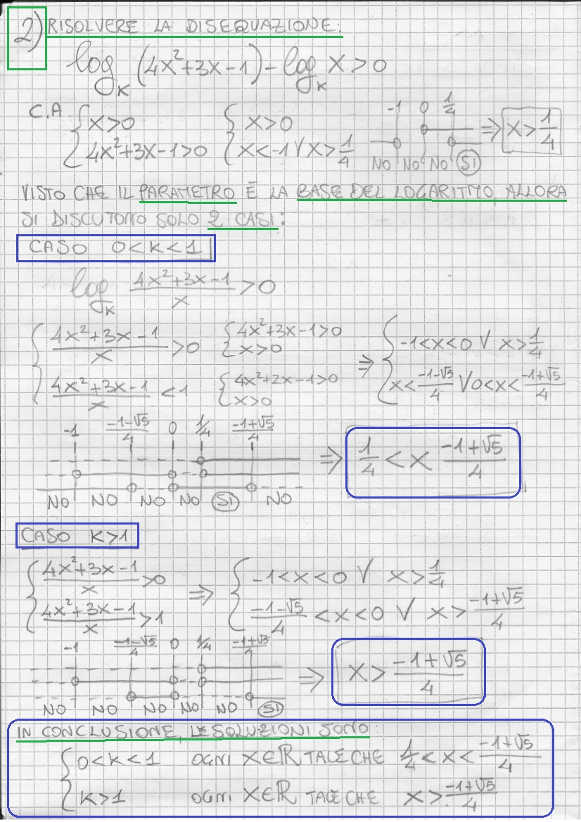 2) RISOLVERE LA DISEQUAZIONE:
log_K (4x²+3x-1) - log_K x > 0
C.A { x>0 { x>0 -1 0 1/4
{ 4x²+3x-1>0 { x<-1 V x>1/4 NO NO NO SI ⇒ x>1/4
VISTO CHE IL PARAMETRO È LA BASE DEL LOGARITMO ALLORA
SI DISCUTONO SOLO 2 CASI:
CASO 0<K<1
log_K (4x²+3x-1)/x > 0
{ (4x²+3x-1)/x > 0 { 4x²+3x-1>0 { x>0 ⇒ { -1<x<0 V x>1/4
{ (4x²+3x-1)/x < 1 { 4x²+2x-1>0 { x>0 { x<(-1-√5)/4 V 0<x<(-1+√5)/4
-1 (-1-√5)/4 0 1/4 (-1+√5)/4
NO NO NO NO SI NO ⇒ 1/4 < x (-1+√5)/4
CASO K>1
{ (4x²+3x-1)/x > 0 ⇒ { -1<x<0 V x>1/4
{ (4x²+3x-1)/x > 1 { (-1-√5)/4 <x<0 V x>(-1+√5)/4
-1 (-1-√5)/4 0 1/4 (-1+√5)/4
NO NO NO NO NO SI ⇒ x > (-1+√5)/4
IN CONCLUSIONE, LE SOLUZIONI SONO:
{ 0<K<1 OGNI X∈R TALE CHE 1/4<x<(-1+√5)/4
{ K>1 OGNI X∈R TALE CHE x>(-1+√5)/4